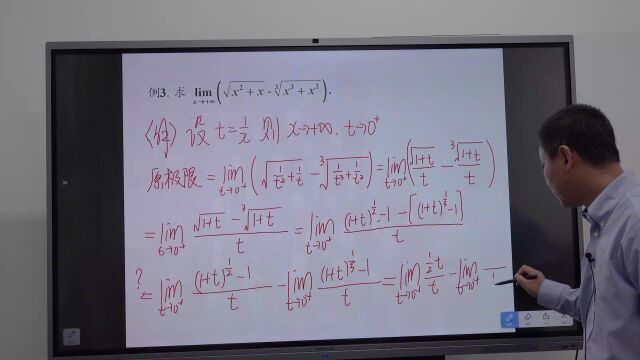 例3. 求 lim x→+∞ (√(x²+x) - ∛(x³+x²)).
(解) 设 t=1/x 则 x→+∞, t→0⁺
原极限 = lim t→0⁺ (√(1/t²+1/t) - ∛(1/t³+1/t²)) = lim t→0⁺ (√(1+t)/t - ∛(1+t)/t)
= lim t→0⁺ (√(1+t) - ∛(1+t))/t = lim t→0⁺ ((1+t)^(1/2) -1 - [(1+t)^(1/3) -1])/t
?= lim t→0⁺ ((1+t)^(1/2) -1)/t - lim t→0⁺ ((1+t)^(1/3) -1)/t = lim t→0⁺ (1/2 t)/t - lim t→0⁺